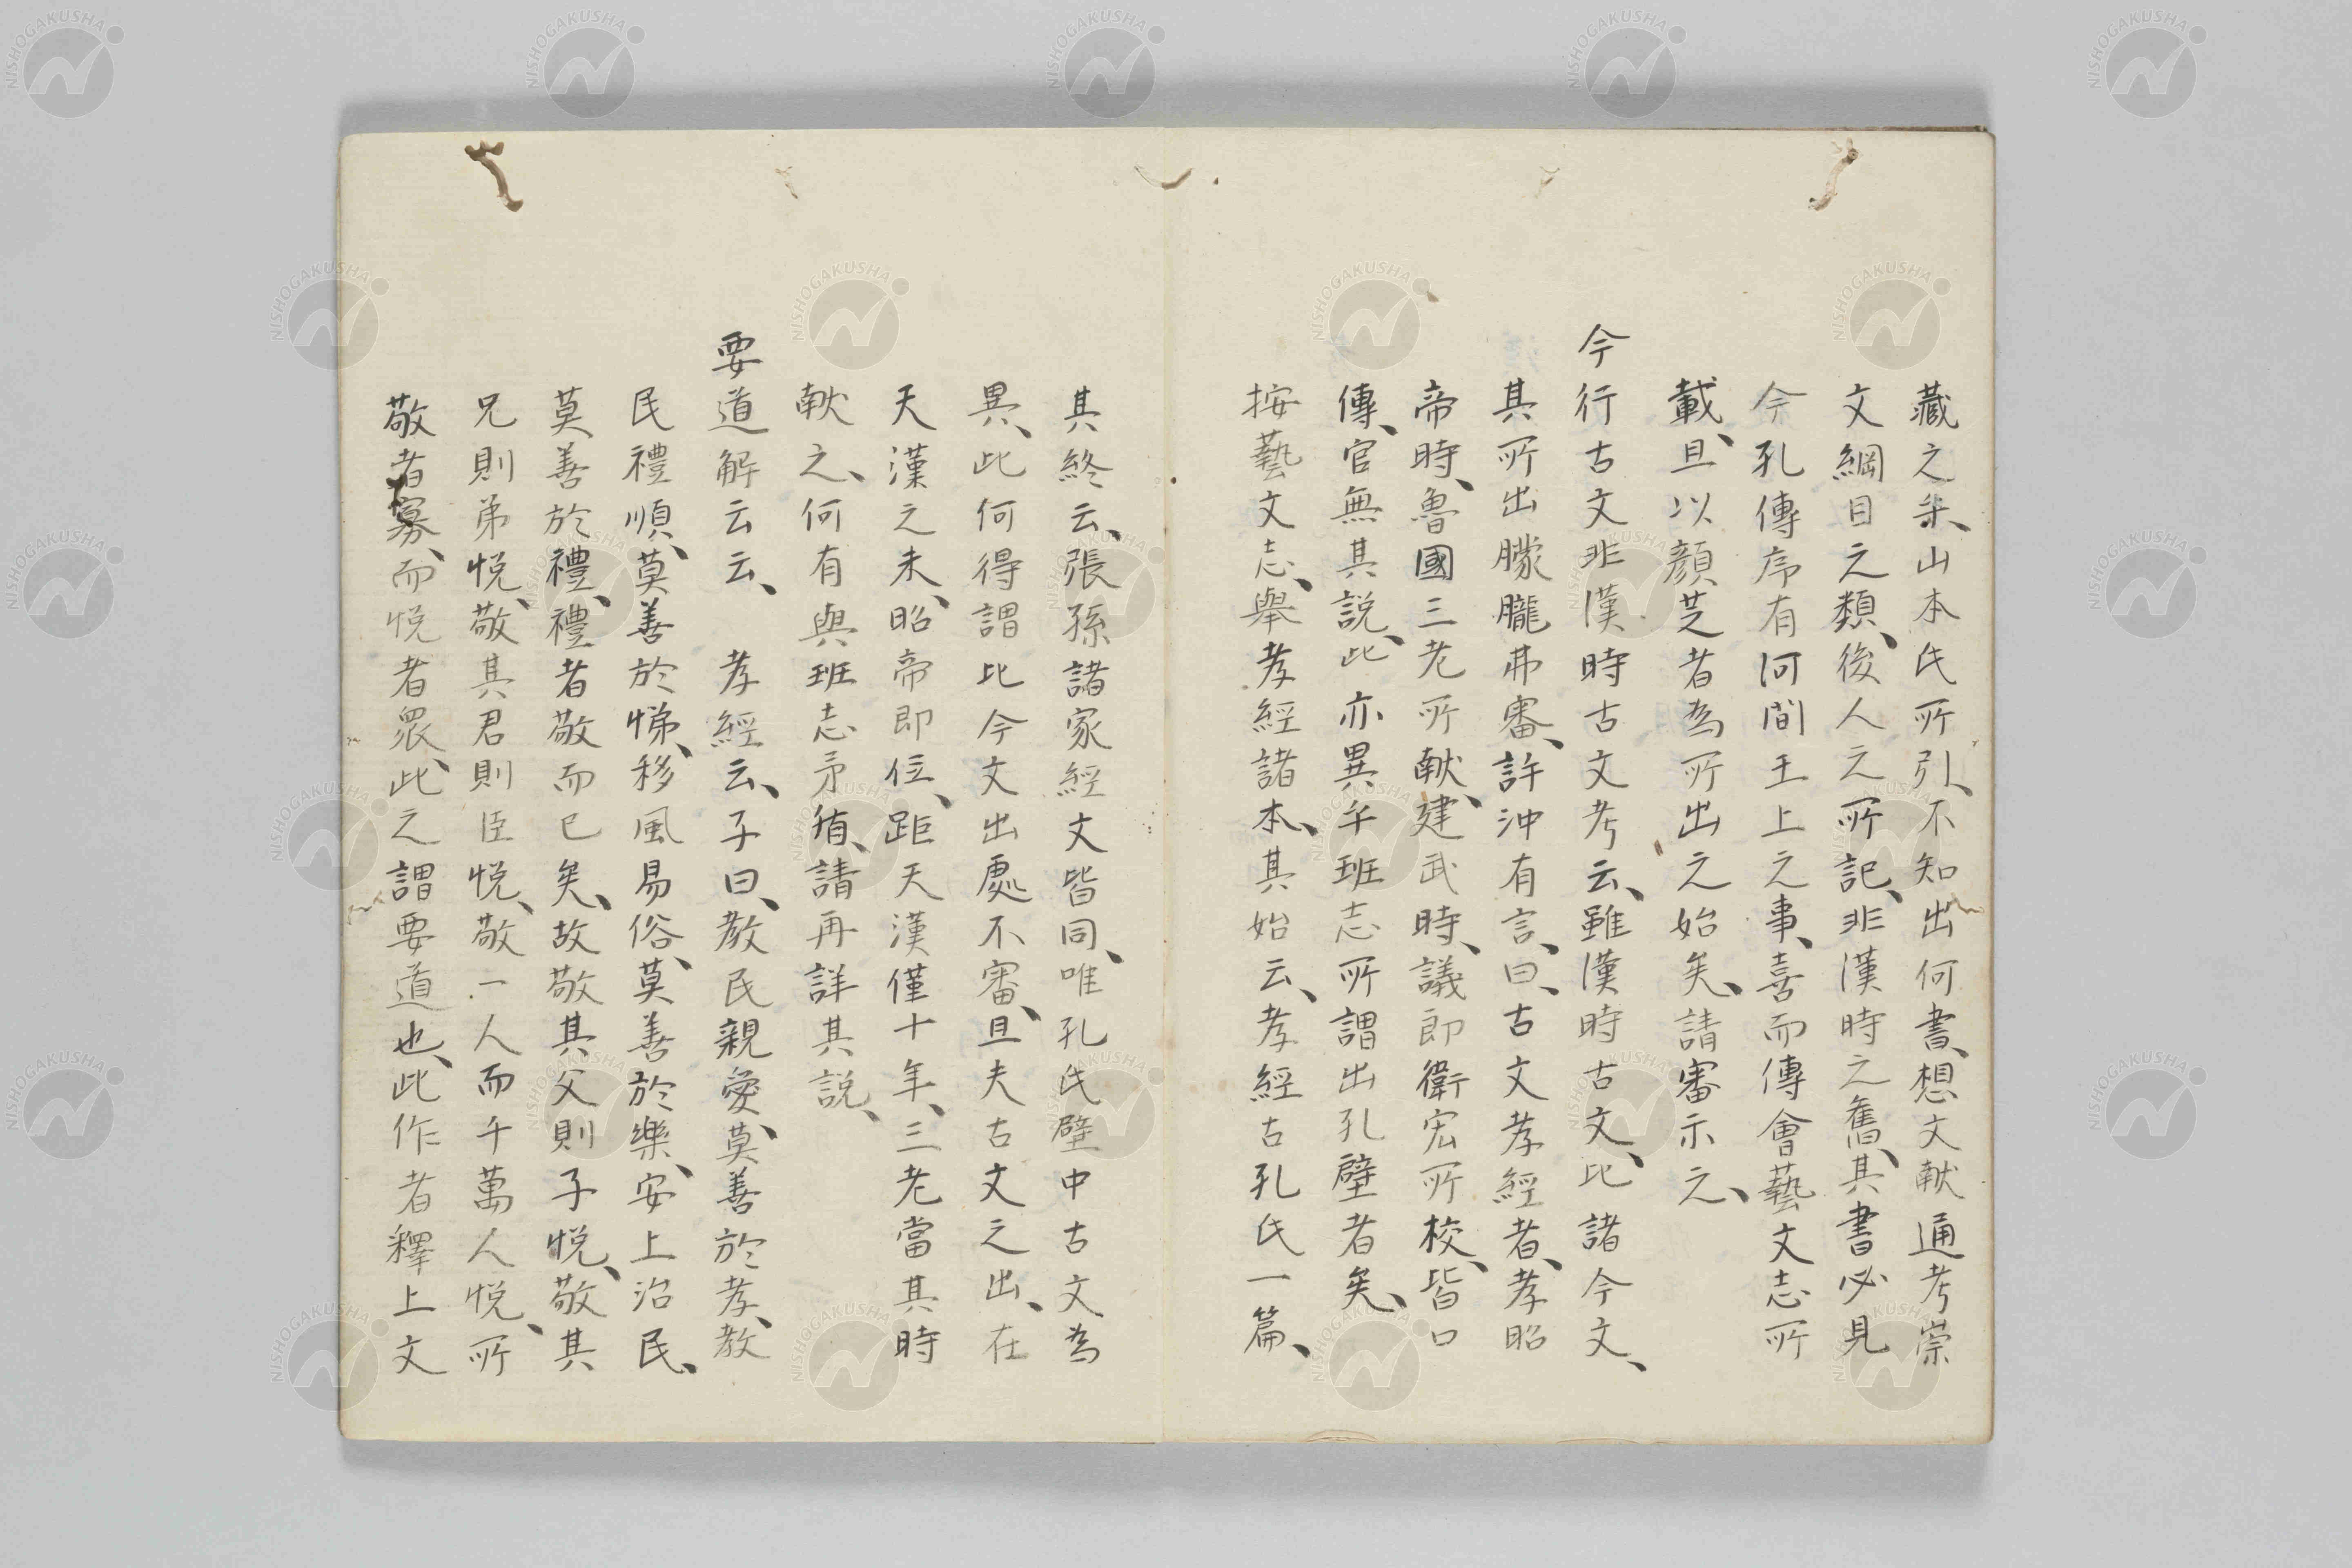 藏之柒、山本氏所引、不知出何書、想文献通考崇
文綱目之類、後人之所記、非漢時之舊、其書必見
今孔傳序有河間王上之事、喜而傳會藝文志所
載、且以顔芝者為所出之始矣、請審示之、
今行古文非漢時古文考云、雖漢時古文、比諸今文、
其所出朦朧弗審、許沖有言、曰、古文孝經者、孝昭
帝時、魯國三老所献、建武時、議即衛宏所校、皆口
傳、官無其説、此亦異乎班志所謂出孔壁者矣、
按藝文志、舉孝經諸本、其始云、孝經古孔氏一篇、
其終云、張孫諸家經文皆同、唯孔氏壁中古文為
異、此何得謂比今文出處不審、且夫古文之出、在
天漢之末、昭帝即位、距天漢僅十年、三老當其時
献之、何有與班志矛楯、請再詳其説、
要道解云云、 孝經云、子曰、教民親愛、莫善於孝、教
民禮順、莫善於悌、移風易俗、莫善於樂、安上治民、
莫善於禮、禮者敬而已矣、故敬其父則子悦、敬其
兄則弟悦、敬其君則臣悦、敬一人而千萬人悦、所
敬者寡、而悦者衆、此之謂要道也、此作者釋上文
NISHOGAKUSHA